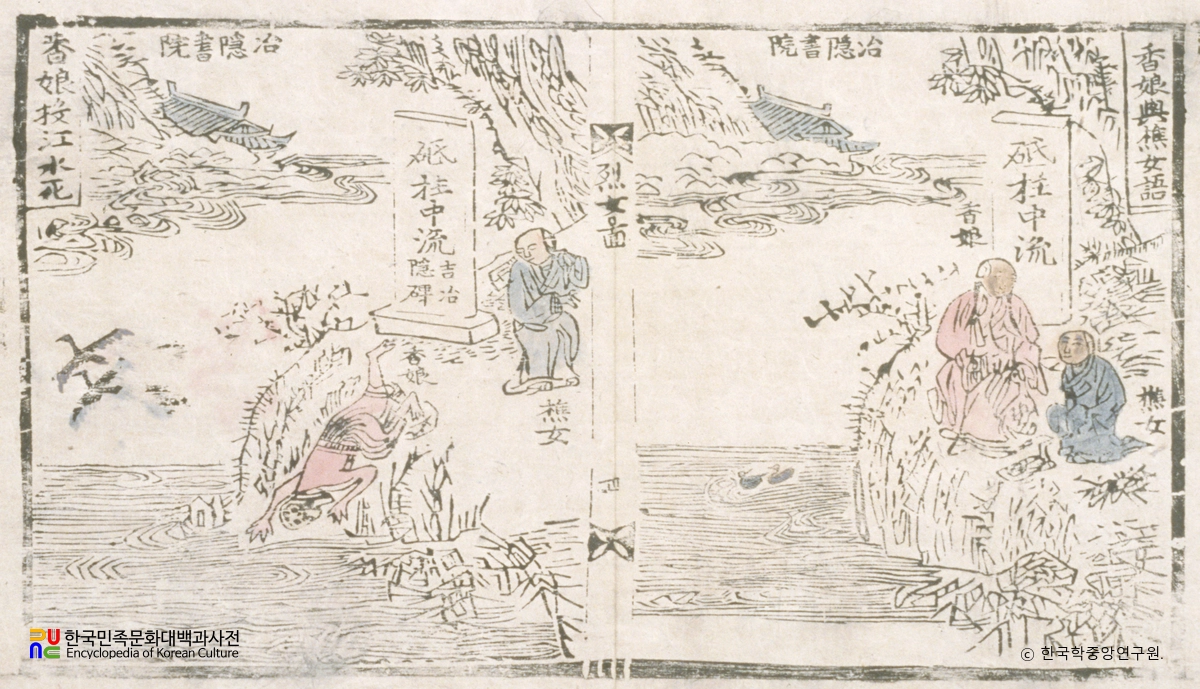 香娘與樵女語
冶隱書院
砥柱中流
香娘
樵女
烈女圖
冶隱書院
砥柱中流
吉冶
隱碑
樵女
香娘
香娘投江水死
한국민족문화대백과사전
Encyclopedia of Korean Culture
ⓒ 한국학중앙연구원.